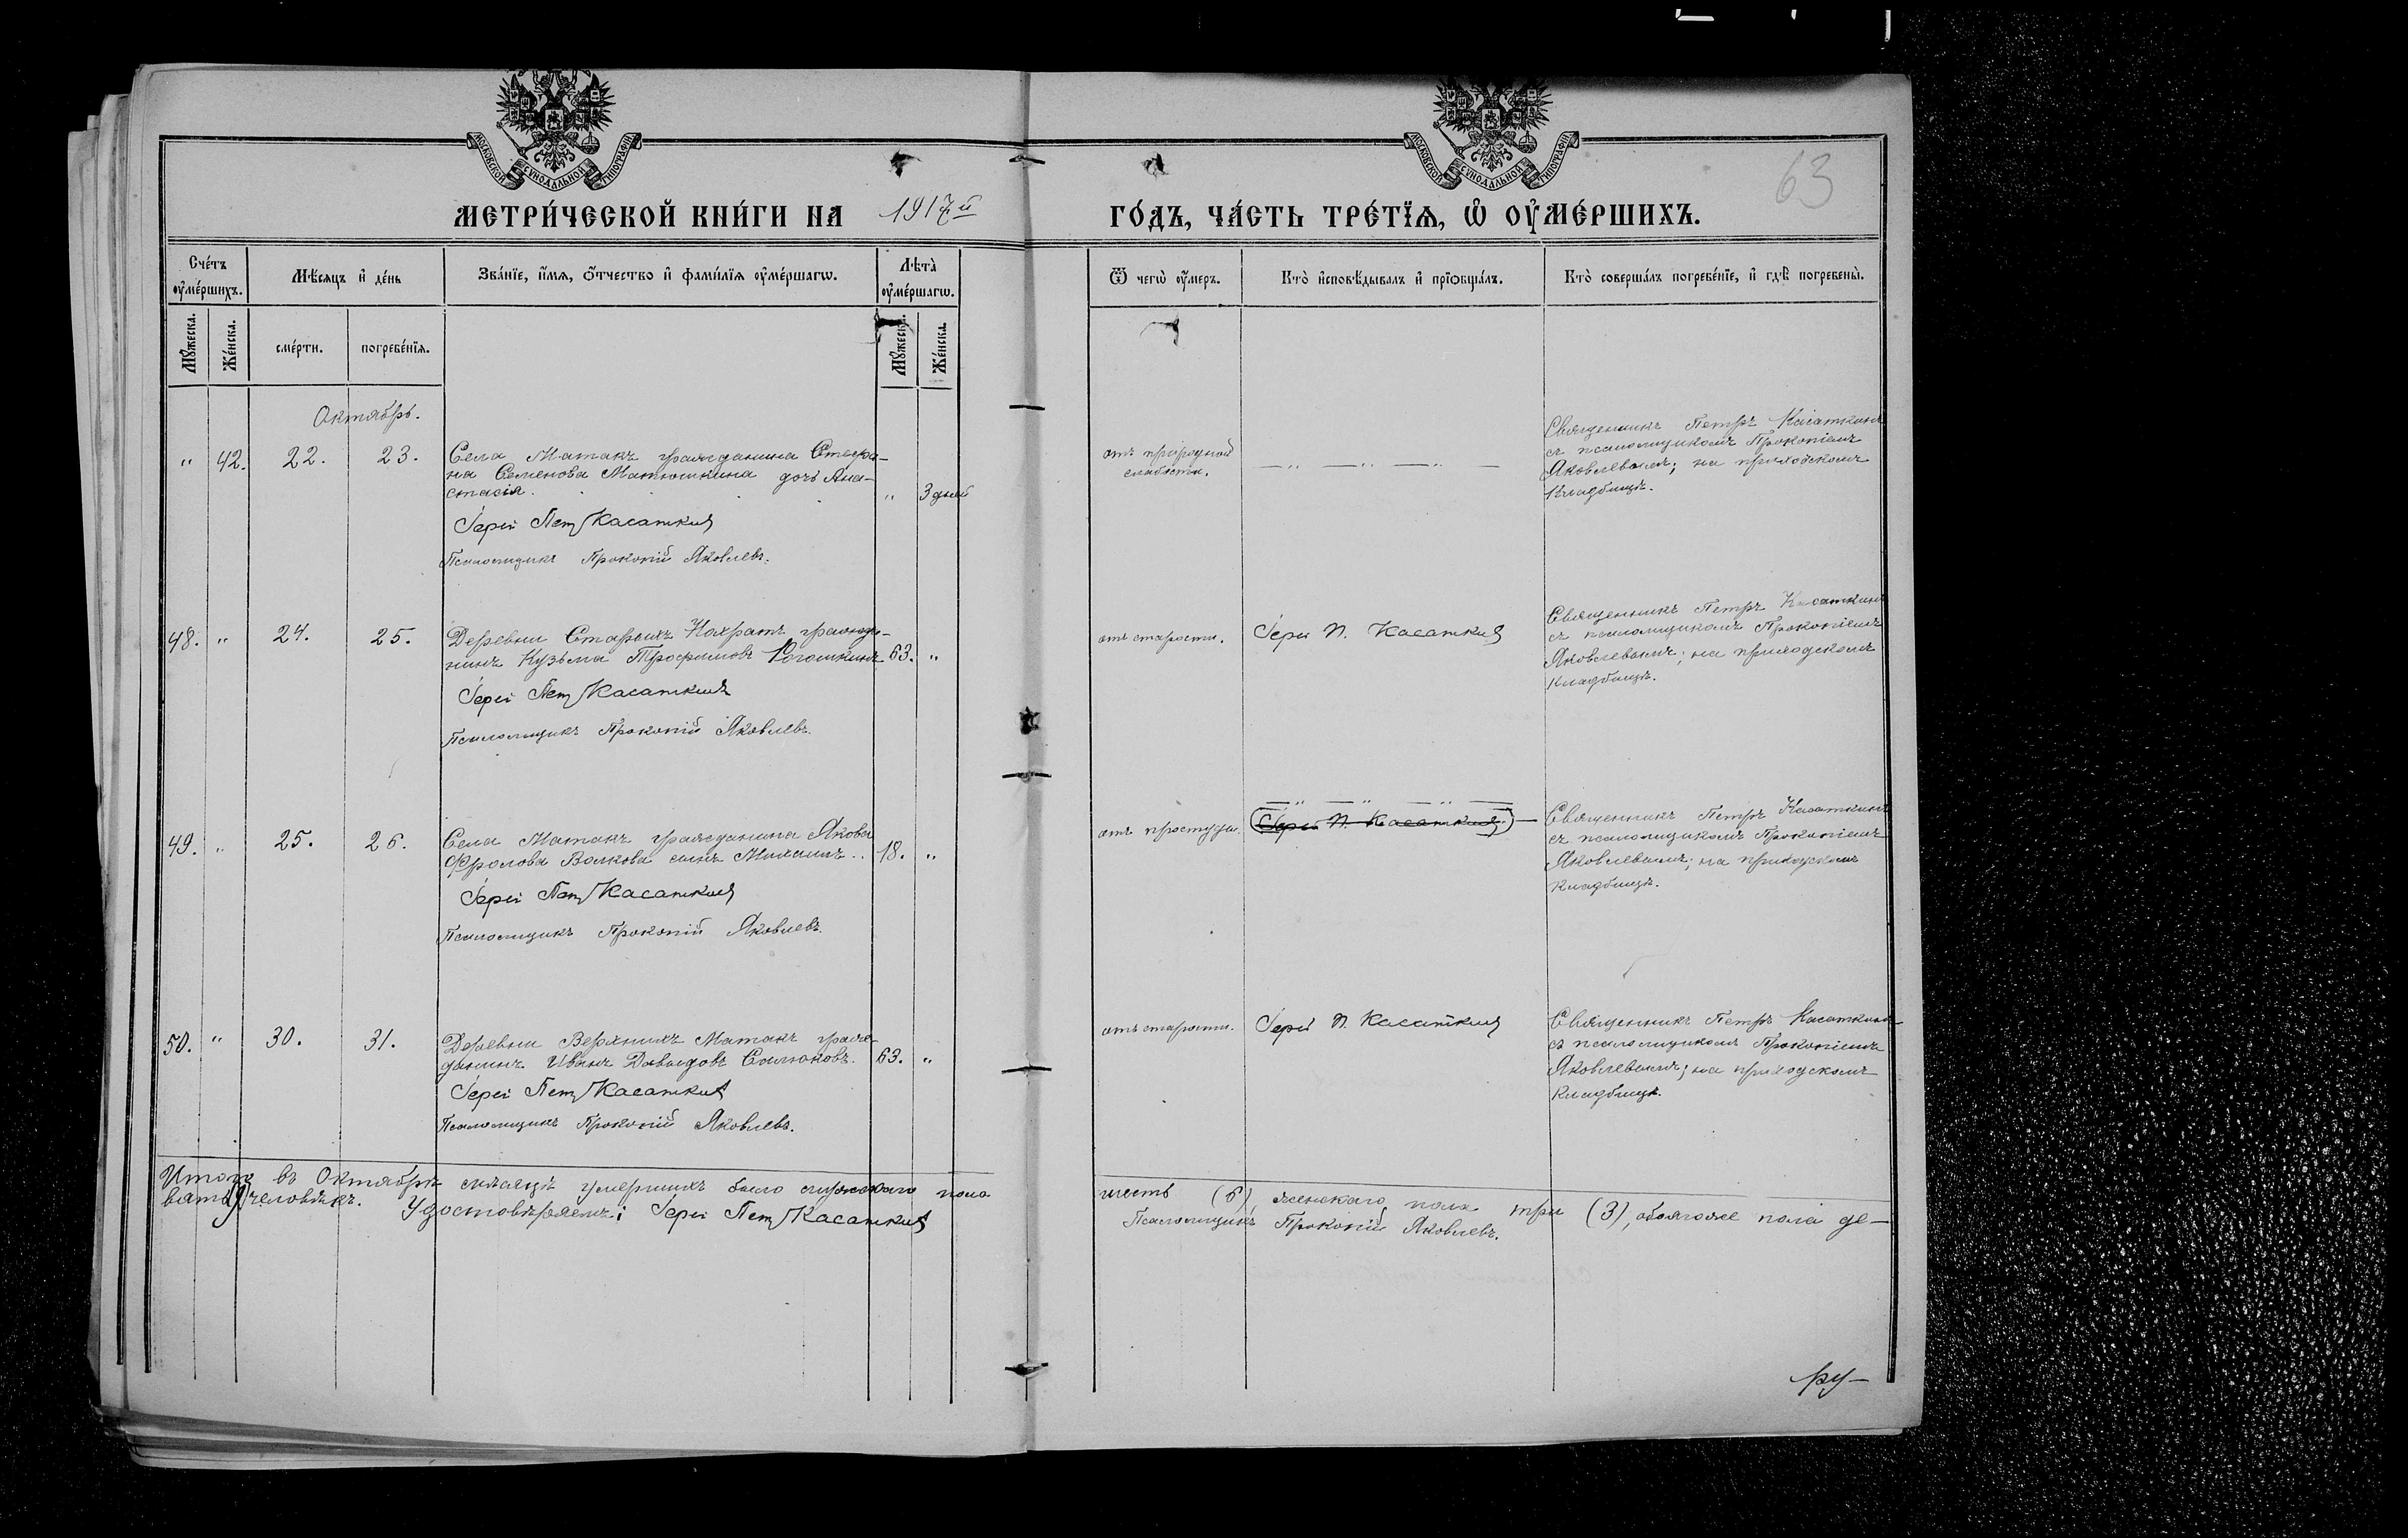 МОСКОВСКОЙ СѴНОДАЛЬНОЙ ТИПОГРАФІИ
МОСКОВСКОЙ СѴНОДАЛЬНОЙ ТИПОГРАФІИ
63
МЕТРИ́ЧЕСКОЙ КНИ́ГИ НА 1917й ГО́ДЪ, ЧА́СТЬ ТРЕ́ТЇѦ, Ѡ҆ ОУ҆МЕ́РШИХЪ.
Сче́тъ оу҆ме́ршихъ.
Мѣ́сѧцъ и҆ де́нь
Зва́нїе, и҆́мѧ, ѻ҆́тчество и҆ фами́лїѧ оу҆ме́ршагѡ.
Лѣта̀ оу҆ме́ршагѡ.
Ѿ чегѡ̀ оу҆́меръ.
Кто̀ и҆сповѣ́дывалъ и҆ прїѡбща́лъ.
Кто̀ соверша́лъ погребе́нїе, и҆ гдѣ̀ погребены̀.
Мꙋ́жеска.
Же́нска.
сме́рти.
погребе́нїѧ.
Мꙋ́жеска.
Же́нска.
Октябрь.
" 42. 22. 23.
Села Матакъ гражданина Стефа-
на Семенова Матюшкина дочь Ана-
стасія. " 3 дней
Іерей Пет Касаткинъ
Псаломщикъ Прокопій Яковлевъ.
отъ природной
слабости.
Священникъ Петръ Касаткинъ
съ псаломщикомъ Прокопіемъ
Яковлевымъ; на приходскомъ
кладбищѣ.
48. " 24. 25.
Деревни Старыхъ Нохратъ гражда-
нинъ Кузьма Трофимовъ Рогошкинъ 63. "
Іерей Пет Касаткинъ
Псаломщикъ Прокопій Яковлевъ.
отъ старости.
Іерей П. Касаткинъ
Священникъ Петръ Касаткинъ
съ псаломщикомъ Прокопіемъ
Яковлевымъ; на приходскомъ
кладбищѣ.
49. " 25. 26.
Села Матакъ гражданина Якова
Фролова Волкова сынъ Михаилъ.. 18. "
Іерей Пет Касаткинъ
Псаломщикъ Прокопій Яковлевъ.
отъ простуды.
(Іерей П. Касаткинъ)
Священникъ Петръ Касаткинъ
съ псаломщикомъ Прокопіемъ
Яковлевымъ; на приходскомъ
кладбищѣ.
50. " 30. 31.
Деревни Верхнихъ Матакъ граж-
данинъ Иванъ Давыдовъ Салюковъ. 63. "
Іерей Пет Касаткинъ
Псаломщикъ Прокопій Яковлевъ.
отъ старости.
Іерей П. Касаткинъ
Священникъ Петръ Касаткинъ
съ псаломщикомъ Прокопіемъ
Яковлевымъ; на приходскомъ
кладбищѣ.
Итого въ Октябрѣ мѣсяцѣ умершихъ было мужескаго пола шесть (6) женскаго пола три (3), обоягоже пола де-
вять (9) человѣкъ. Удостовѣряемъ: Іерей Пет Касаткинъ Псаломщикъ Прокопій Яковлевъ.
ру-